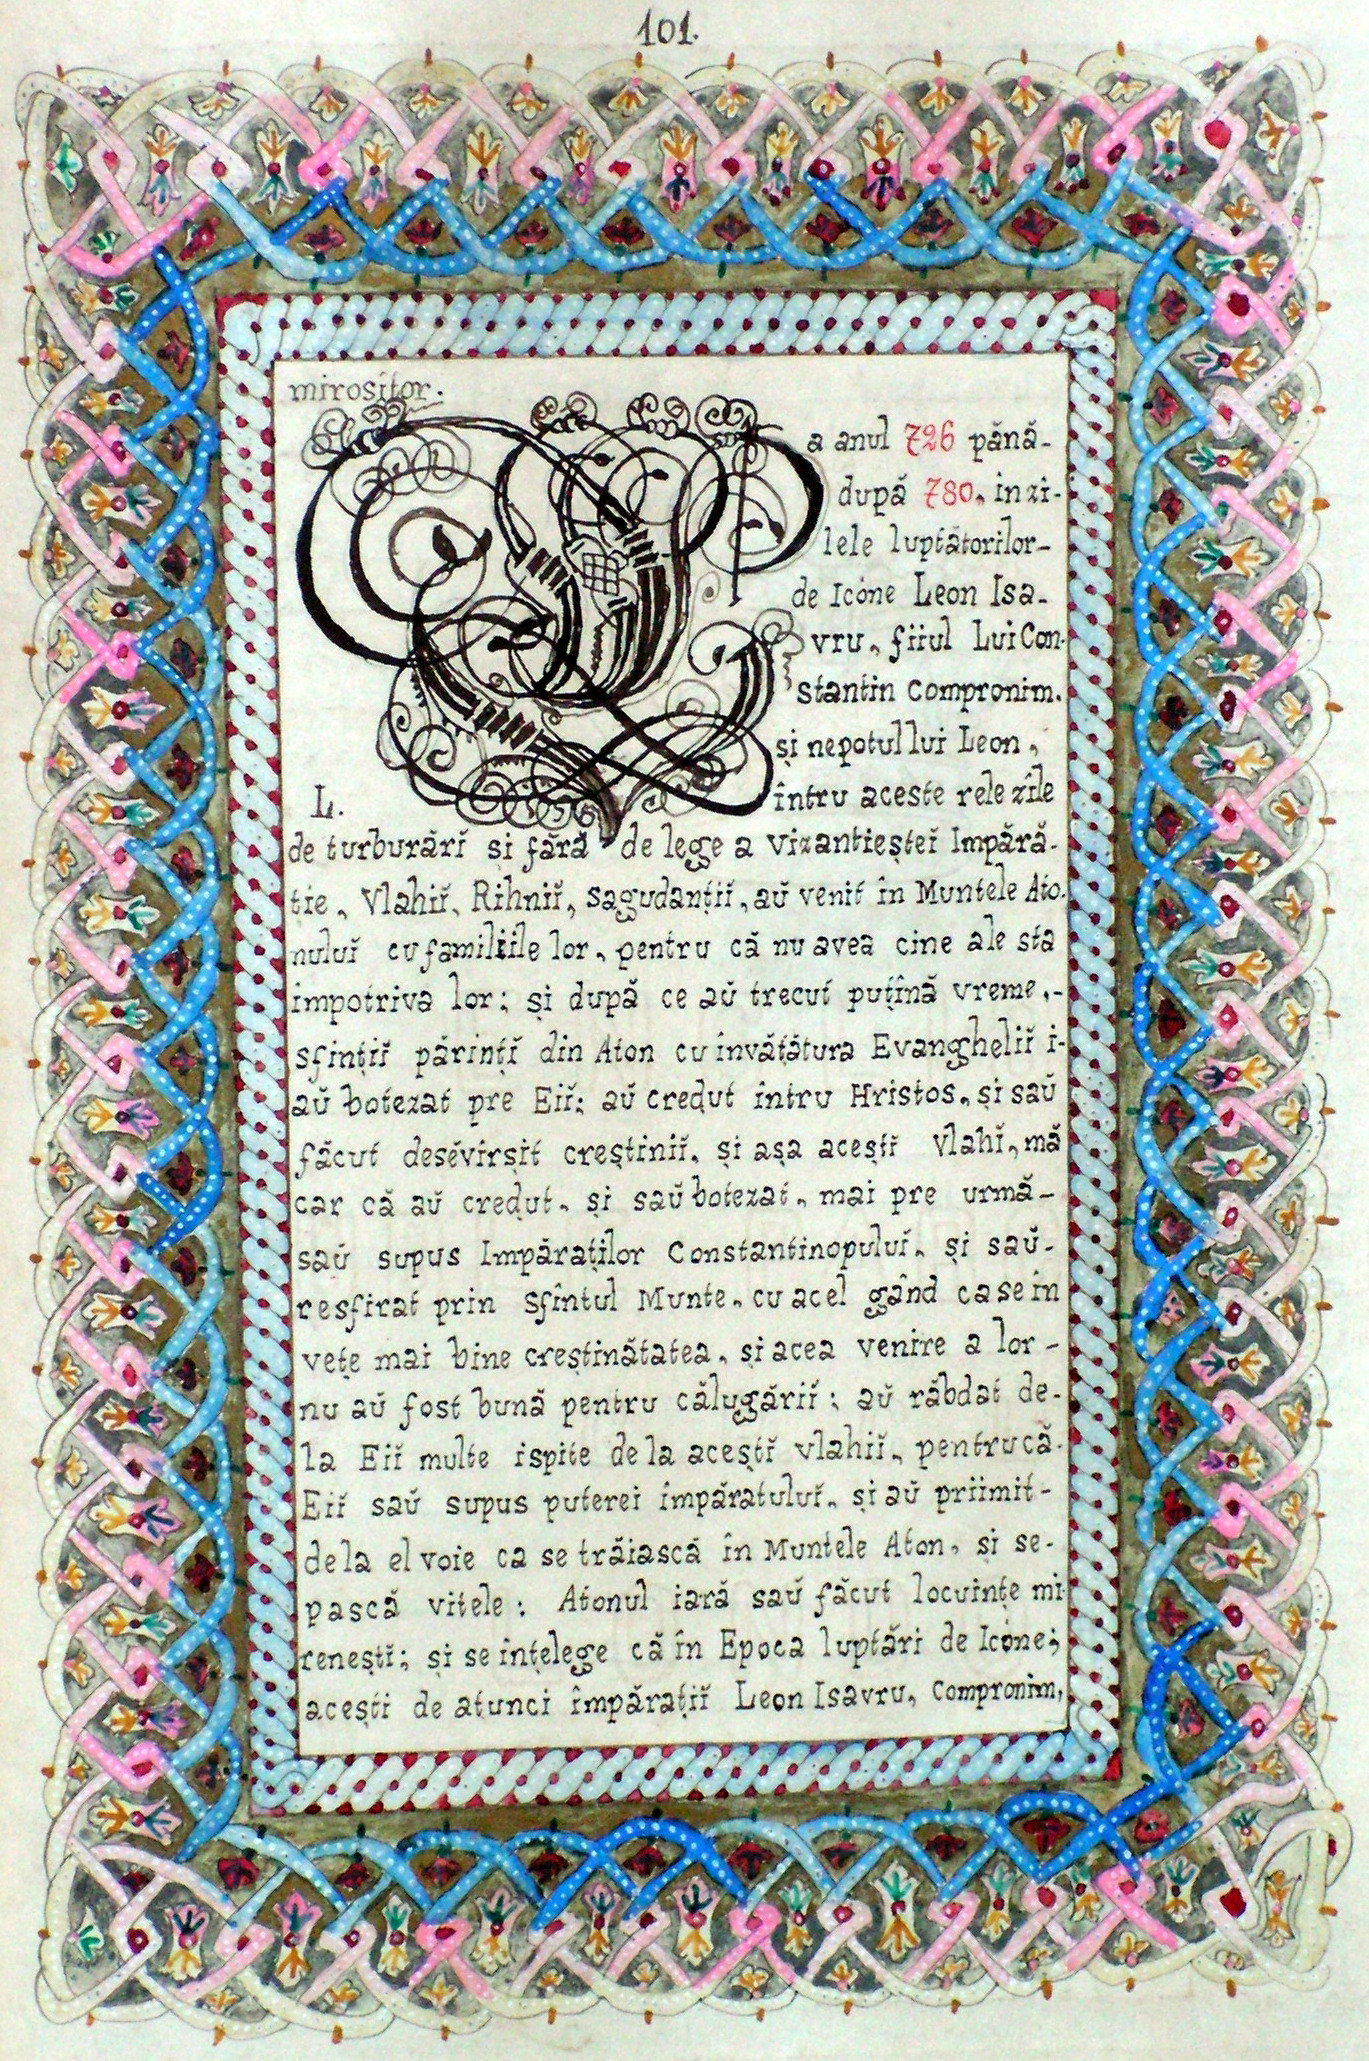 101.
mirositor.
a anul 726 până-
după 780, in zi-
lele luptătorilor-
de Icóne Leon Isa-
vru, fiiul Lui Con-
stantin Compronim.
și nepotul lui Leon,
întru aceste rele zile
L.
de turburărĭ si fără de lege a vizantieșteĭ Impără-
ție, Vlahiĭ, Rihniĭ, sagudanțiĭ, aŭ venit în Muntele Ato-
nuluĭ cu familiile lor, pentru că nu avea cine ale sta
impotriva lor; și după ce aŭ trecut puțină vreme,-
sfințiĭ părințĭ din Aton cu invățătura Evangheliĭ i-
aŭ botezat pre Eiĭ; aŭ credut intru Hristos, și saŭ
făcut desĕvirșit creștiniĭ, și așa aceștĭ Vlahĭ, mă
car că aŭ credut, și saŭ botezat, mai pre urmă-
saŭ supus Impăraților Constantinopuluĭ, și saŭ-
resfirat prin Sfîntul Munte, cu acel gând ca se în
vețe mai bine creștinătatea, și acea venire a lor-
nu aŭ fost bună pentru călugăriĭ; aŭ răbdat de-
la Eiĭ multe ispite de la aceștĭ vlahiĭ, pentru că-
Eiĭ saŭ supus puterei impăratuluĭ, și aŭ priimit-
de la el voie ca se trăiască în Muntele Aton, și se-
pască vitele: Atonul iară saŭ făcut locuințe mi-
reneștĭ; și se ințelege că în Epoca luptări de Icone;
acești de atunci împărațiĭ Leon Isavru, Compronim,